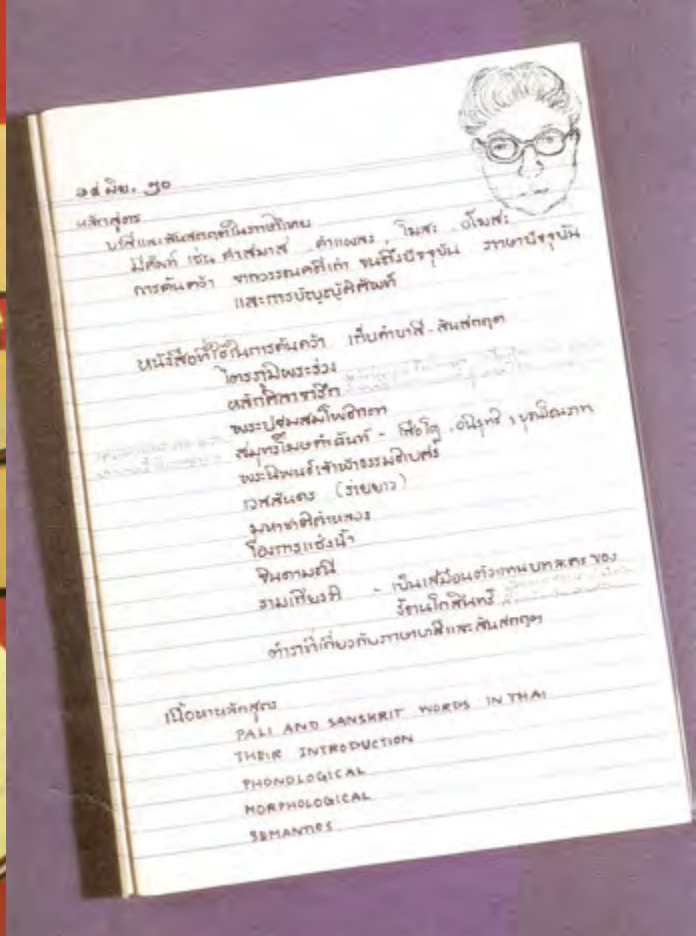 ๑๔ มิย. ๒๐
หลักสูตร
บาลีและสันสกฤตในภาษาไทย
มีศัพท์ เช่น คำสมาส คำแผลง , โฆสะ อโฆสะ
การค้นคว้า จากวรรณคดีเก่า จนถึงปัจจุบัน ภาษาปัจจุบัน
และการบัญญัติศัพท์
หนังสือที่ใช้ในการค้นคว้า เก็บคำบาลี-สันสกฤต
ไตรภูมิพระร่วง
หลักศิลาจารึก
พระปฐมสมโพธิกถา
สมุทรโฆษคำฉันท์ - เสือโค , อนิรุทธ์ , บุณโณวาท
พระนิพนธ์เจ้าฟ้าธรรมธิเบศร์
เวสสันดร (ร่ายยาว)
มหาชาติคำหลวง
โองการแช่งน้ำ
จินดามณี
รามเกียรติ์ - เป็นเสมือนตัวแทนบทละคร ของ
รัตนโกสินทร์
ตำราที่เกี่ยวกับภาษาบาลีและสันสกฤต
เนื้อหาหลักสูตร
PALI AND SANSKRIT WORDS IN THAI
THEIR INTRODUCTION
PHONOLOGICAL
MORPHOLOGICAL
SEMANTICS